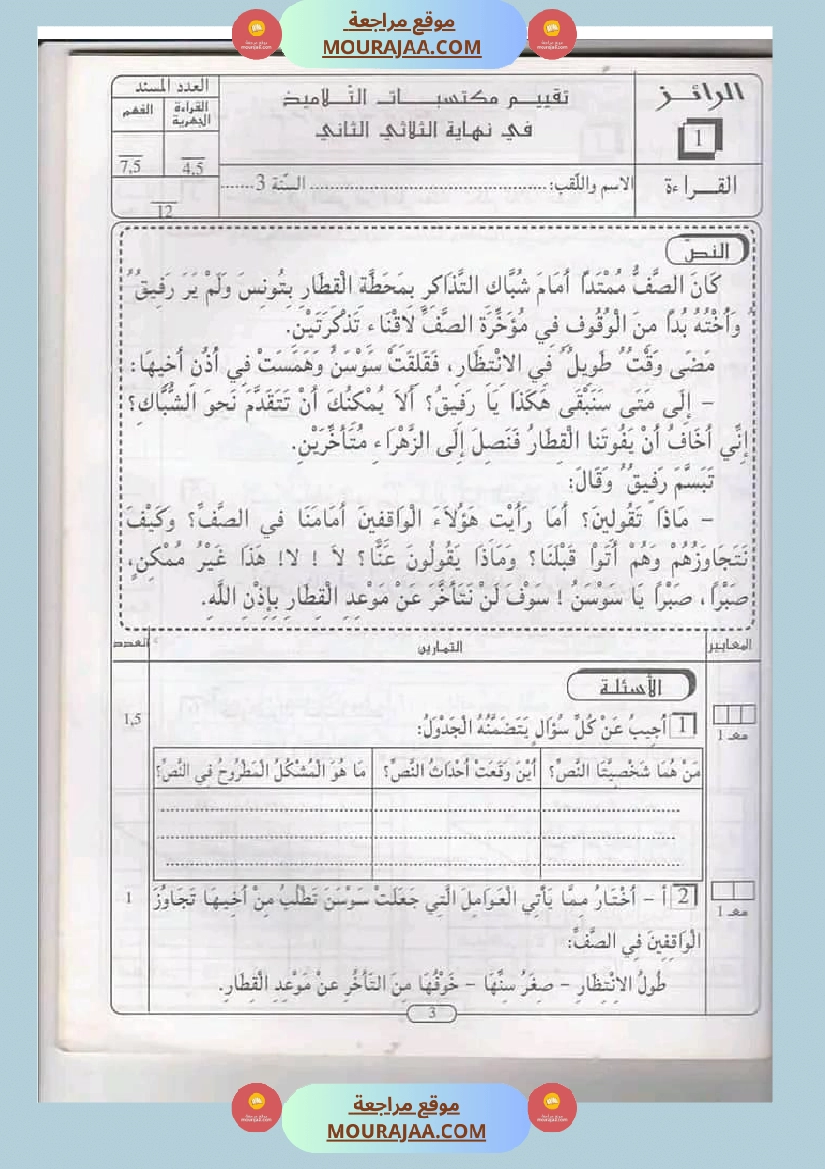 موقع مراجعة
MOURAJAA.COM
الرائز
1
تقييم مكتسبات التّلاميذ
في نهاية الثلاثي الثاني
العدد المسند
القراءة الجهرية
الفهم
4,5
7,5
12
القراءة
الاسم واللّقب:........................................ السّنة 3.......
النصّ
كَانَ الصَّفُّ مُمْتَدًّا أَمَامَ شُبَّاكِ التَّذَاكِرِ بِمَحَطَّةِ الْقِطَارِ بِتُونِسَ وَلَمْ يَرَ رَفِيقٌ
وَأُخْتُهُ بُدًّا مِنَ الْوُقُوفِ فِي مُؤَخَّرَةِ الصَّفِّ لاقْتِنَاءِ تَذْكَرَتَيْنِ.
مَضَى وَقْتٌ طَوِيلٌ فِي الانْتِظَارِ، فَقَلِقَتْ سَوْسَنُ وَهَمَسَتْ فِي أُذُنِ أَخِيهَا:
– إِلَى مَتَى سَنَبْقَى هَكَذَا يَا رَفِيقُ؟ أَلاَ يُمْكِنُكَ أَنْ تَتَقَدَّمَ نَحوَ الشُّبَّاكِ؟
إِنِّي أَخَافُ أَنْ يَفُوتَنا الْقِطَارُ فَنَصِلَ إِلَى الزَّهْرَاءِ مُتَأَخِّرَيْنِ.
تَبَسَّمَ رَفِيقٌ وَقَالَ:
– مَاذَا تَقُولِينَ؟ أَمَا رَأَيْتِ هَؤُلاَءِ الْوَاقِفِينَ أَمَامَنَا فِي الصَّفِّ؟ وَكَيْفَ
نَتَجَاوَزُهُمْ وَهُمْ أَتَوْا قَبْلَنَا؟ وَمَاذَا يَقُولُونَ عَنَّا؟ لاَ ! لا! هَذَا غَيْرُ مُمْكِنٍ،
صَبْرًا، صَبْرًا يَا سَوْسَنُ ! سَوْفَ لَنْ نَتَأَخَّرَ عَنْ مَوْعِدِ الْقِطَارِ بِإِذْنِ اللَّهِ.
المعايير
التمارين
العدد
الأسئلة
1 أُجِيبُ عَنْ كُلِّ سُؤَالٍ يَتَضَمَّنُهُ الْجَدْوَلُ:
معـ 1
1,5
مَنْ هُمَا شَخْصِيَّتَا النَّصِّ؟
أَيْنَ وَقَعَتْ أَحْدَاثُ النَّصِّ؟
مَا هُوَ الْمُشْكِلُ الْمَطْرُوحُ فِي النَّصِّ؟
2 أ – أَخْتَارُ مِمَّا يَأْتِي الْعَوَامِلَ الَّتِي جَعَلَتْ سَوْسَنَ تَطْلُبُ مِنْ أَخِيهَا تَجَاوُزَ
معـ 1
1
الْوَاقِفِينَ فِي الصَّفِّ:
طُولُ الانْتِظَارِ – صِغَرُ سِنِّهَا – خَوْفُهَا مِنَ التَأَخُّرِ عَنْ مَوْعِدِ الْقِطَارِ.
3
موقع مراجعة
MOURAJAA.COM